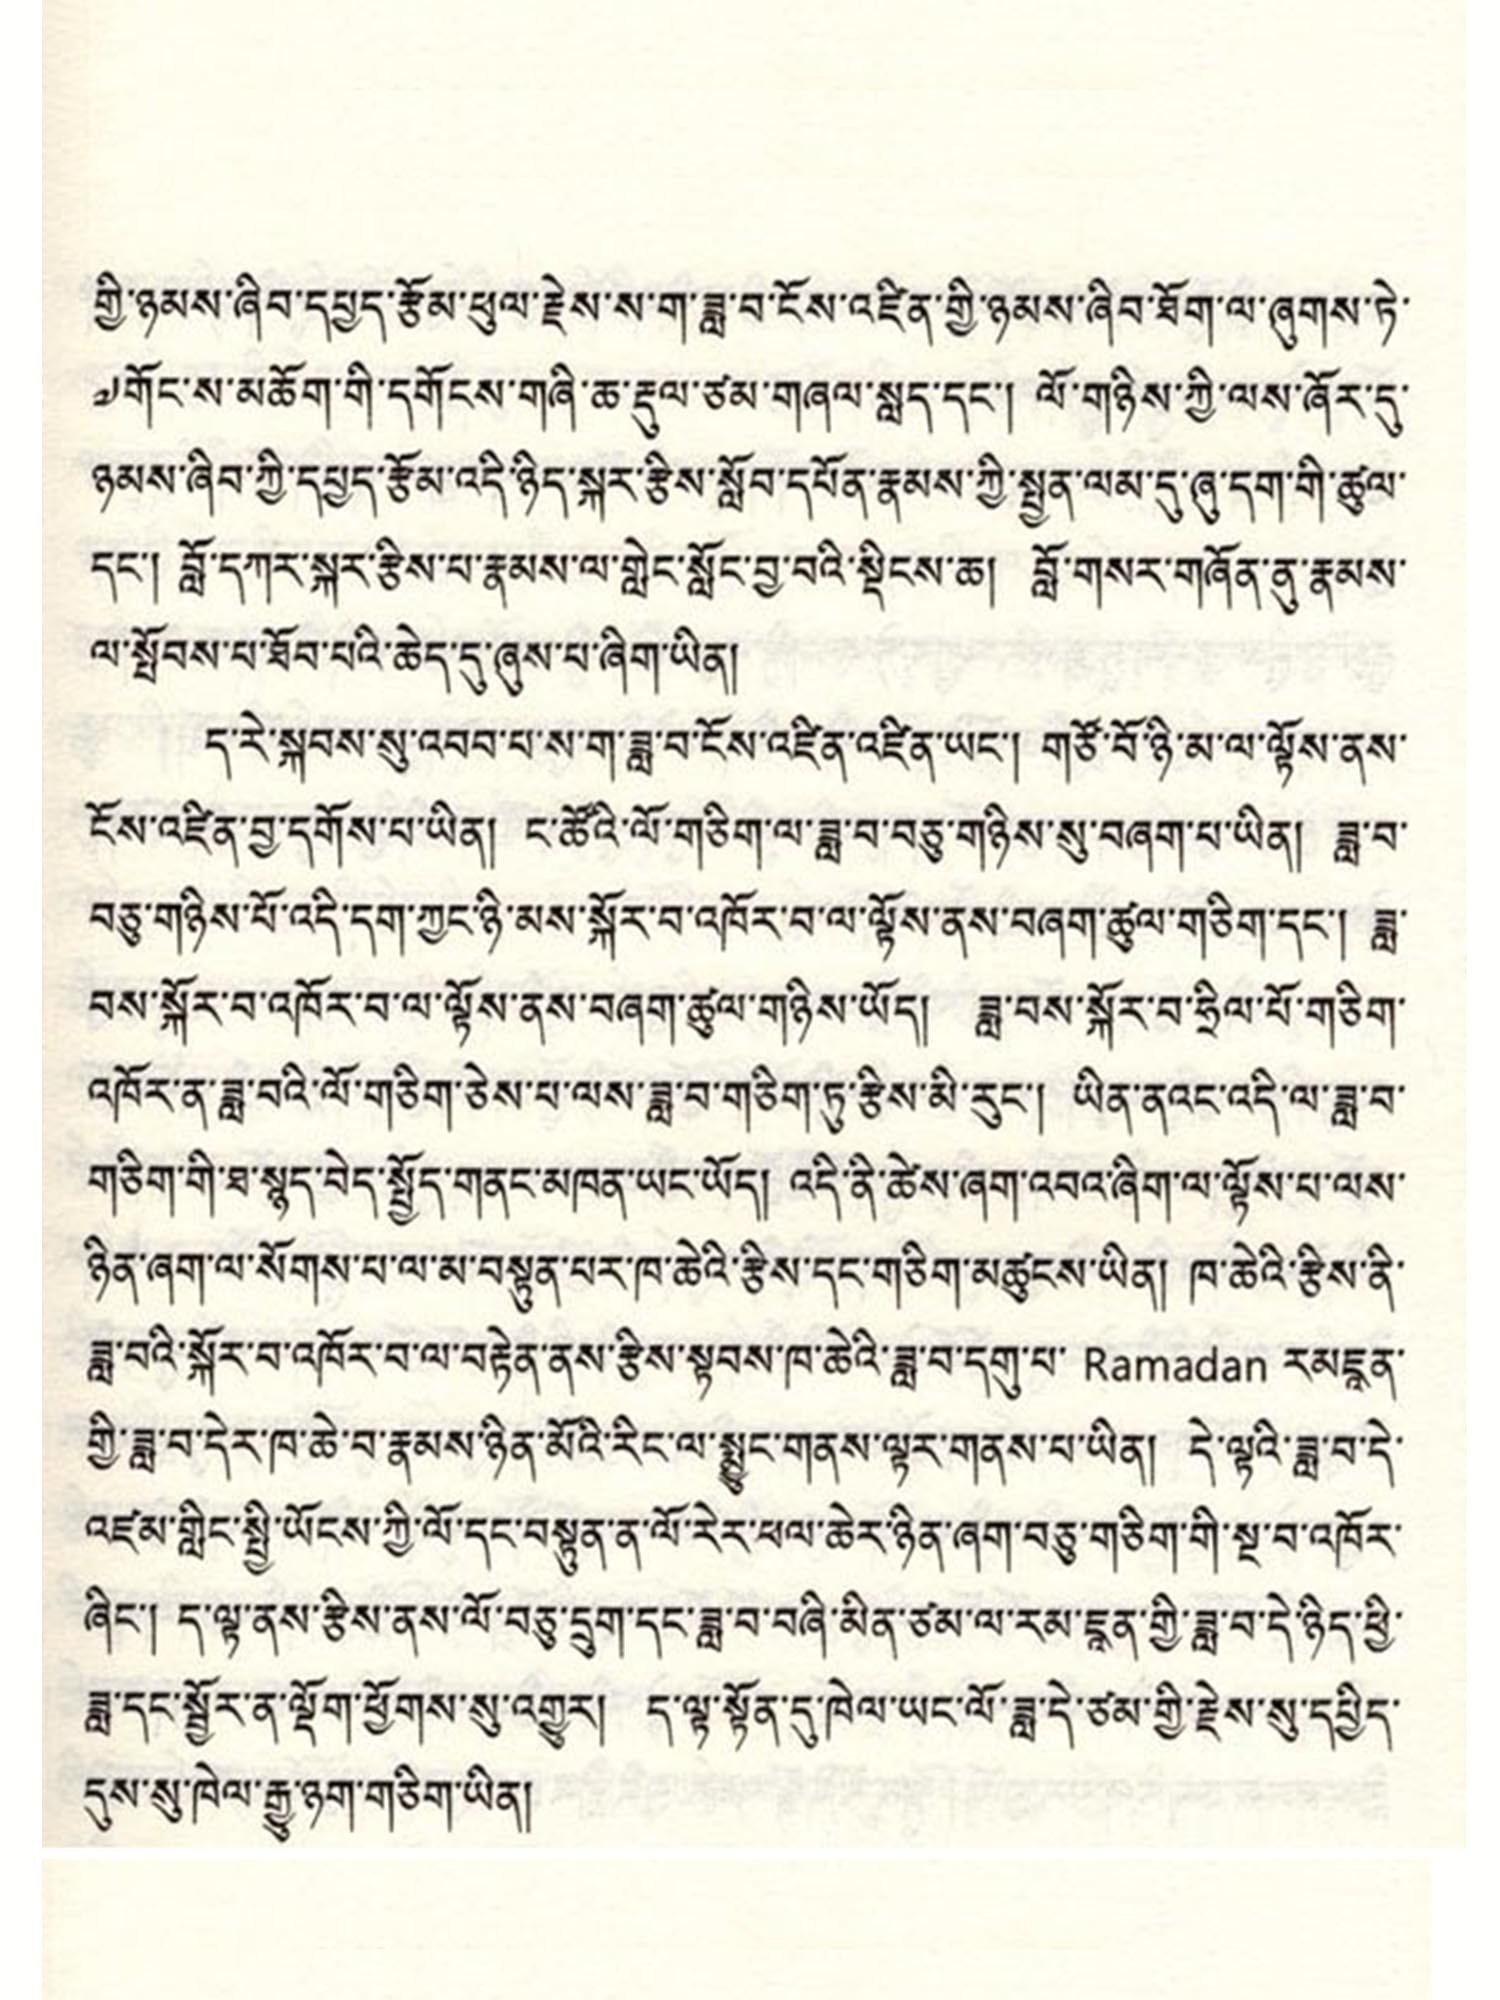 གྱི་ཉམས་ཞིབ་དཔྱད་རྩོམ་ཕུལ་རྗེས་ས་ག་ཟླ་བ་ངོས་འཛིན་གྱི་ཉམས་ཞིབ་ཐོག་ལ་ཞུགས་ཏེ་
༧གོང་ས་མཆོག་གི་དགོངས་གཞི་ཆ་རྡུལ་ཙམ་གཞལ་སླད་དང་། ལོ་གཉིས་ཀྱི་ལས་ཞོར་དུ་
ཉམས་ཞིབ་ཀྱི་དཔྱད་རྩོམ་འདི་ཉིད་སྐར་རྩིས་སློབ་དཔོན་རྣམས་ཀྱི་སྤྱན་ལམ་དུ་ཞུ་དག་གི་ཚུལ་
དང་། བློ་དཀར་སྐར་རྩིས་པ་རྣམས་ལ་གླེང་སློང་བྱ་བའི་སྡིངས་ཆ། བློ་གསར་གཞོན་ནུ་རྣམས་
ལ་སྤོབས་པ་ཐོབ་པའི་ཆེད་དུ་ཞུས་པ་ཞིག་ཡིན།
ད་རེ་སྐབས་སུ་འབབ་པ་ས་ག་ཟླ་བ་ངོས་འཛིན་འཛིན་ཡང་། གཙོ་བོ་ཉི་མ་ལ་ལྟོས་ནས་
ངོས་འཛིན་བྱ་དགོས་པ་ཡིན། ང་ཚོའི་ལོ་གཅིག་ལ་ཟླ་བ་བཅུ་གཉིས་སུ་བཞག་པ་ཡིན། ཟླ་བ་
བཅུ་གཉིས་པོ་འདི་དག་ཀྱང་ཉི་མས་སྐོར་བ་འཁོར་བ་ལ་ལྟོས་ནས་བཞག་ཚུལ་གཅིག་དང་། ཟླ་
བས་སྐོར་བ་འཁོར་བ་ལ་ལྟོས་ནས་བཞག་ཚུལ་གཉིས་ཡོད། ཟླ་བས་སྐོར་བ་ཧྲིལ་པོ་གཅིག་
འཁོར་ན་ཟླ་བའི་ལོ་གཅིག་ཅེས་པ་ལས་ཟླ་བ་གཅིག་ཏུ་རྩིས་མི་རུང་། ཡིན་ནའང་འདི་ལ་ཟླ་བ་
གཅིག་གི་ཐ་སྙད་བེད་སྤྱོད་གནང་མཁན་ཡང་ཡོད། འདི་ནི་ཚེས་ཞག་འབའ་ཞིག་ལ་ལྟོས་པ་ལས་
ཉིན་ཞག་ལ་སོགས་པ་ལ་མ་བསྟུན་པར་ཁ་ཆེའི་རྩིས་དང་གཅིག་མཚུངས་ཡིན། ཁ་ཆེའི་རྩིས་ནི་
ཟླ་བའི་སྐོར་བ་འཁོར་བ་ལ་བརྟེན་ནས་རྩིས་སྟབས་ཁ་ཆེའི་ཟླ་བ་དགུ་པ་ Ramadan རམཌཱན་
གྱི་ཟླ་བ་དེར་ཁ་ཆེ་བ་རྣམས་ཉིན་མོའི་རིང་ལ་སྨྱུང་གནས་ལྟར་གནས་པ་ཡིན། དེ་ལྟའི་ཟླ་བ་དེ་
འཛམ་གླིང་སྤྱི་ཡོངས་ཀྱི་ལོ་དང་བསྟུན་ན་ལོ་རེར་ཕལ་ཆེར་ཉིན་ཞག་བཅུ་གཅིག་གི་སྔ་བ་འཁོར་
ཞིང་། ད་ལྟ་ནས་རྩིས་ནས་ལོ་བཅུ་དྲུག་དང་ཟླ་བ་བཞི་མིན་ཙམ་ལ་རམ་ཌཱན་གྱི་ཟླ་བ་དེ་ཉིད་ཕྱི་
ཟླ་དང་སྦྱོར་ན་ལྡོག་ཕྱོགས་སུ་འགྱུར། ད་ལྟ་སྟོན་དུ་ཁེལ་ཡང་ལོ་ཟླ་དེ་ཙམ་གྱི་རྗེས་སུ་དཔྱིད་
དུས་སུ་ཁེལ་རྒྱུ་ཉག་གཅིག་ཡིན།